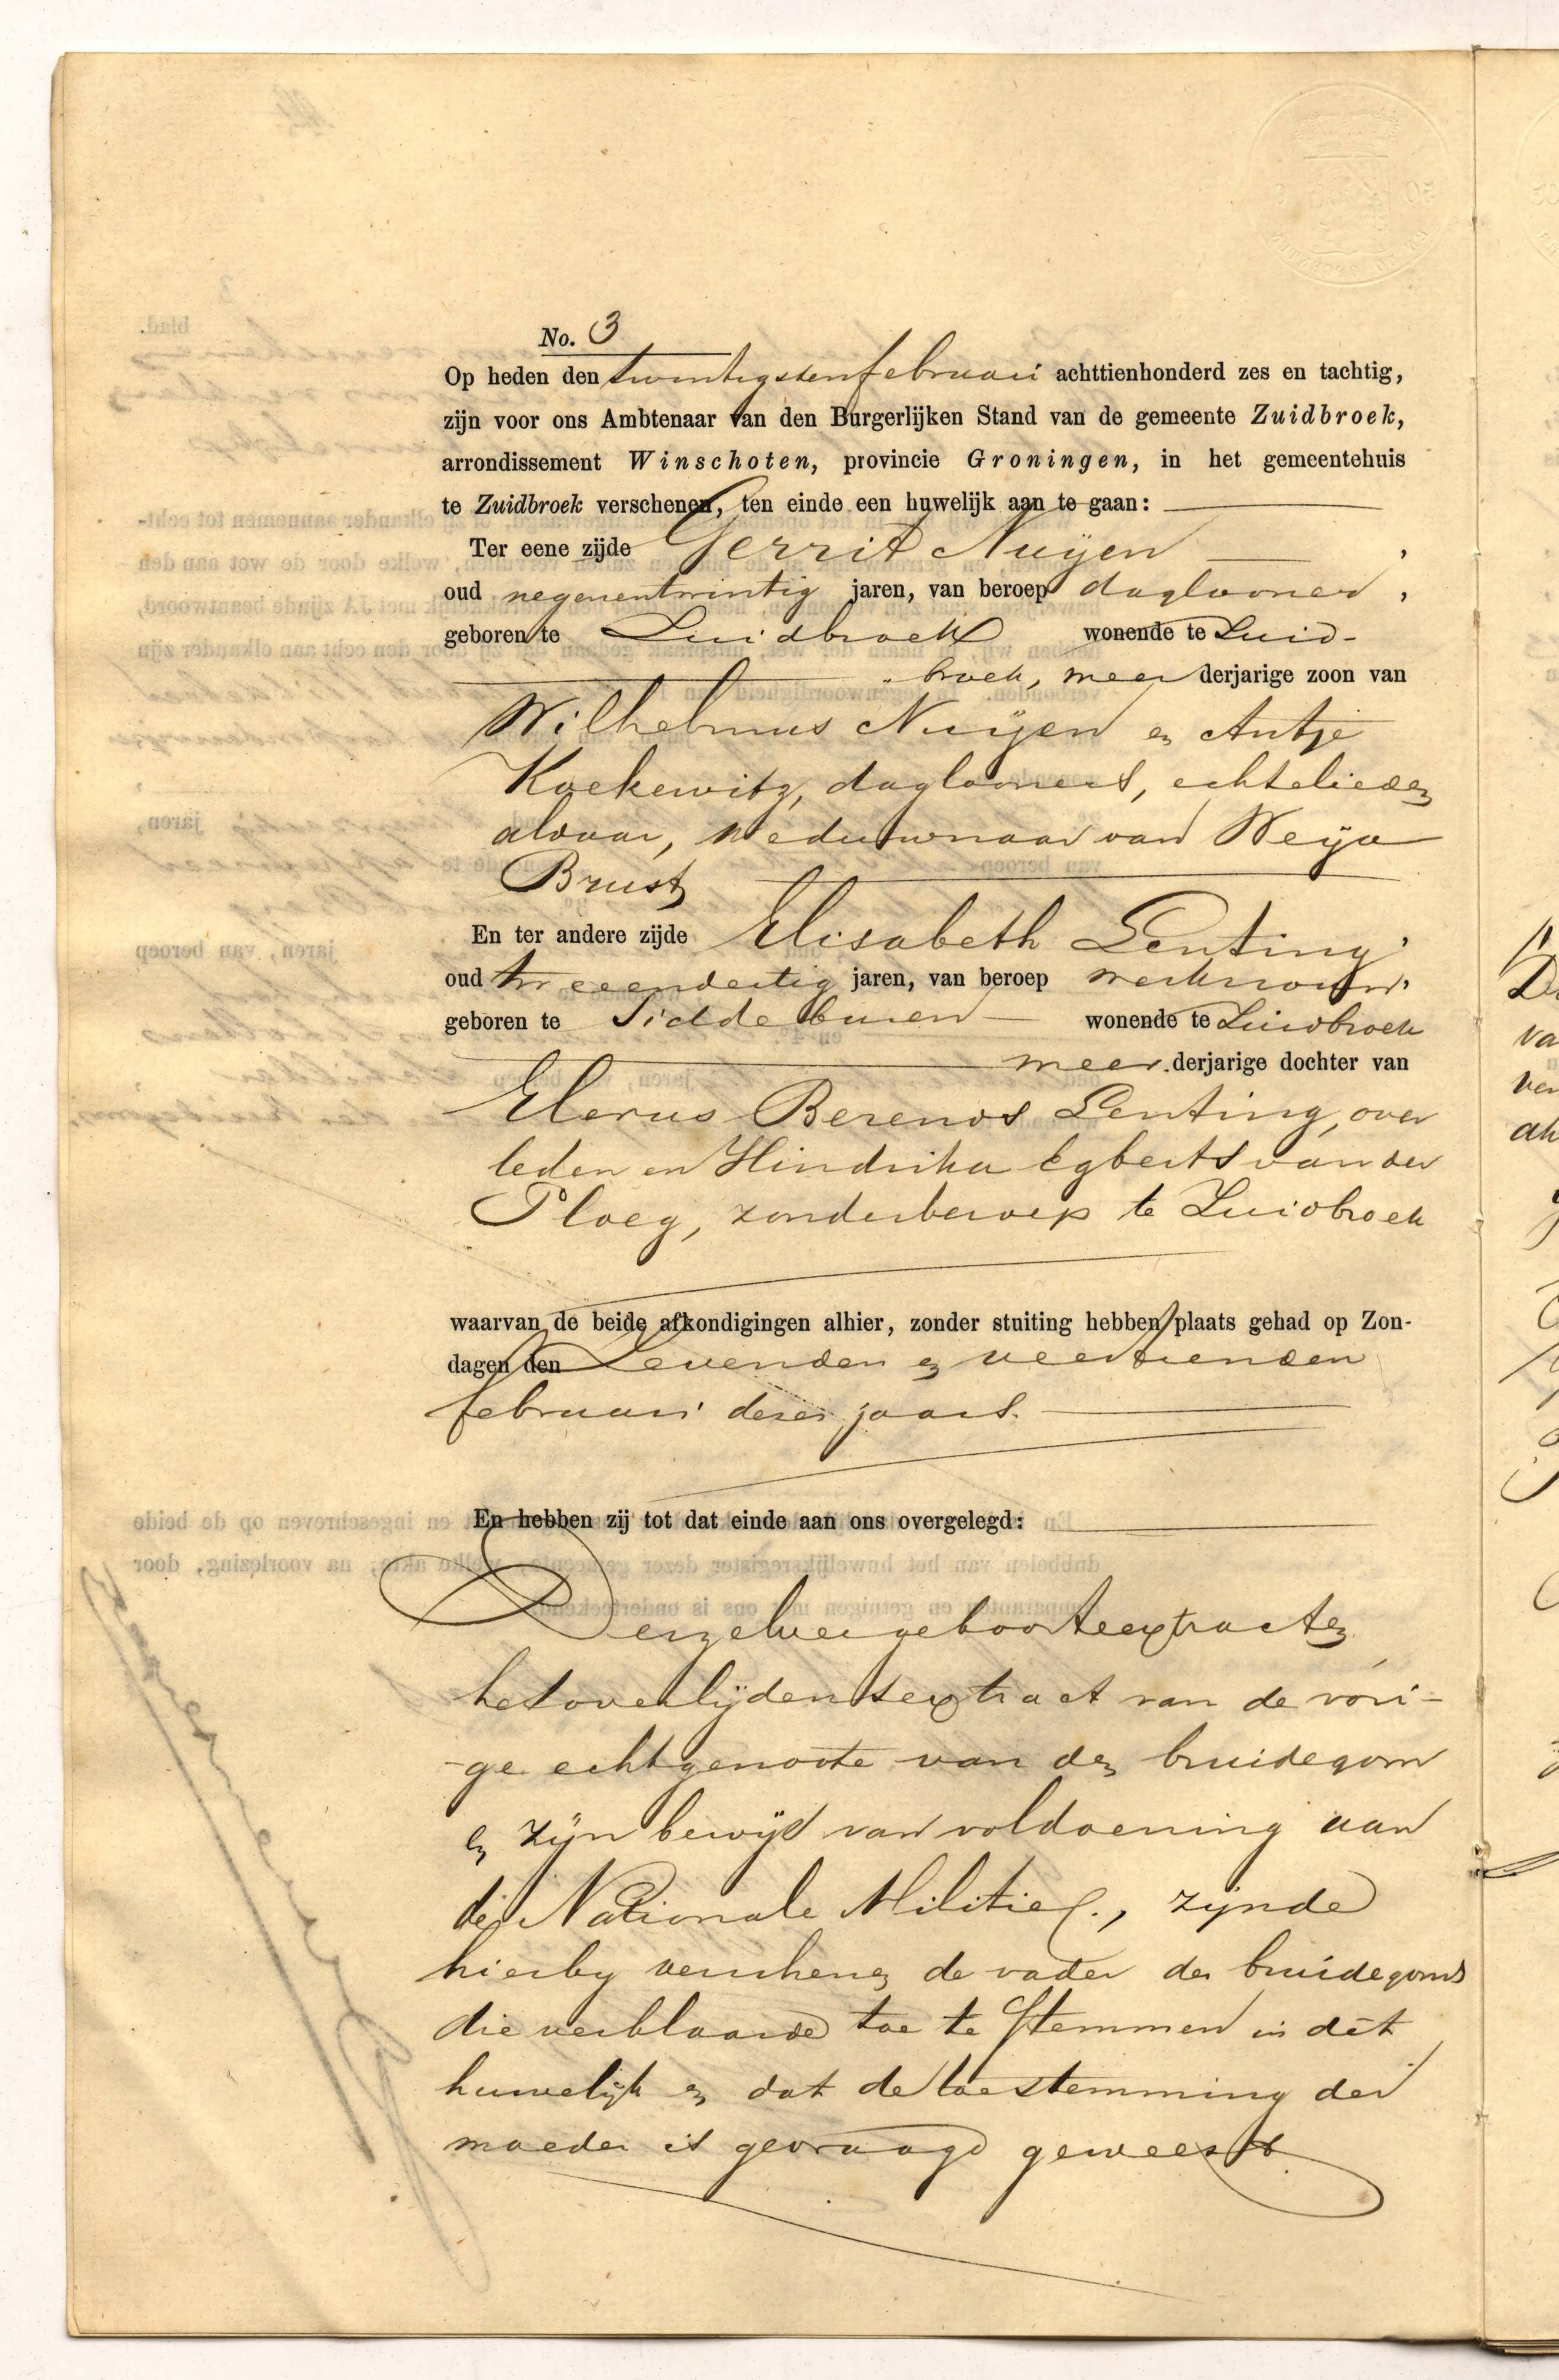 No. 3
Op heden den twintigsten februari achttienhonderd zes en tachtig,
zijn voor ons Ambtenaar van den Burgerlijken Stand van de gemeente Zuidbroek,
arrondissement Winschoten, provincie Groningen, in het gemeentehuis
te Zuidbroek verschenen, ten einde een huwelijk aan te gaan:
Ter eene zijde Gerrit Nuijen,
oud negenentwintig jaren, van beroep daglooner,
geboren te Zuidbroek wonende te Zuid-
broek, meerderjarige zoon van
Wilhelmus Nuijen en Antje
Koekewitz, daglooners, echtelieden
aldaar, weduwnaar van Weija
Brust
En ter andere zijde Elisabeth Lenting,
oud tweeendertig jaren, van beroep werkvrouw,
geboren te Siddeburen wonende te Zuidbroek
meerderjarige dochter van
Elerus Berends Lenting, over
leden en Hindrika Egberts van der
Ploeg, zonder beroep te Zuidbroek
waarvan de beide afkondigingen alhier, zonder stuiting hebben plaats gehad op Zon-
dagen den Zevenden en veertienden
februari dezes jaars.
En hebben zij tot dat einde aan ons overgelegd:
Derzelver geboorteextracten
het overlijdensextract van de vori-
-ge echtgenoote van den bruidegom
en zijn bewijs van voldoening aan
de Nationale Militie, zijnde
hierby verschenen de vader des bruidegoms
die verklaarde toe te stemmen in dit
huwelijk en dat de toestemming der
moeder is gevraagd geweest